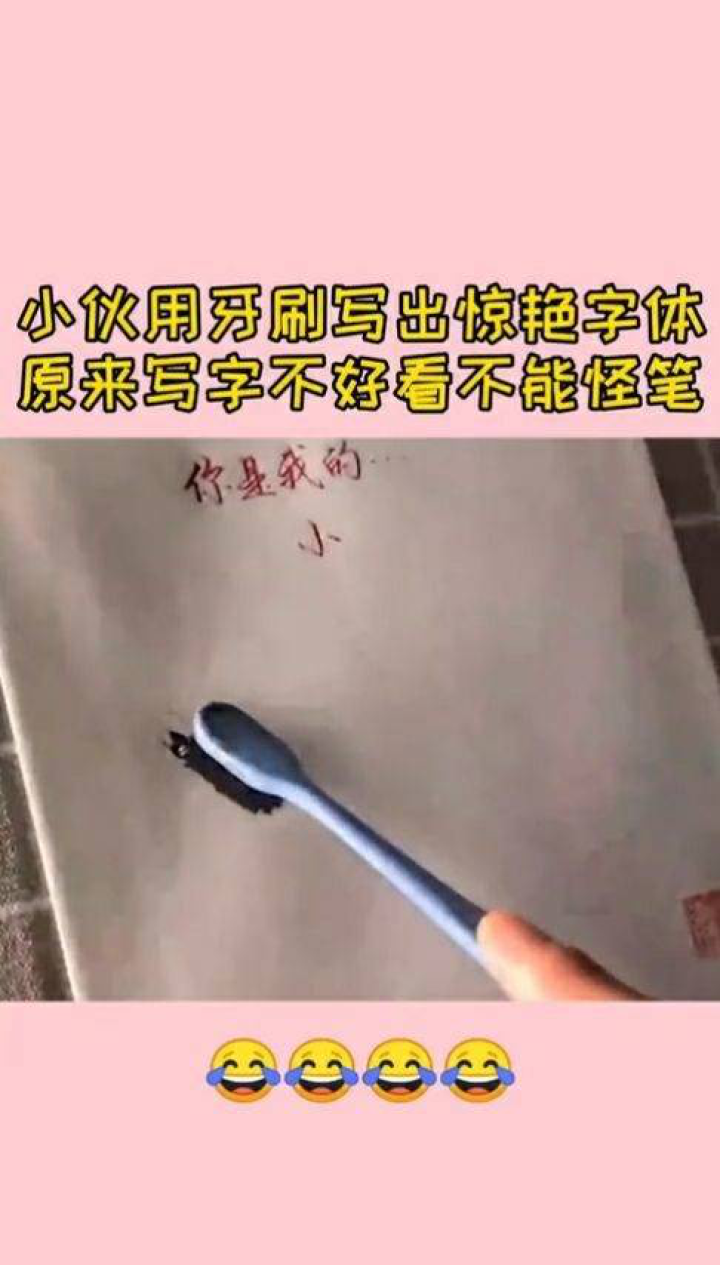 小伙用牙刷写出惊艳字体
原来写字不好看不能怪笔
你是我的...
小